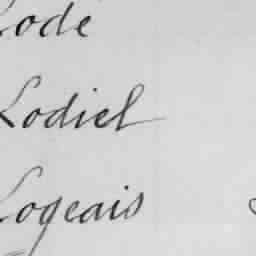 Lodé
Lodiel
Logeais